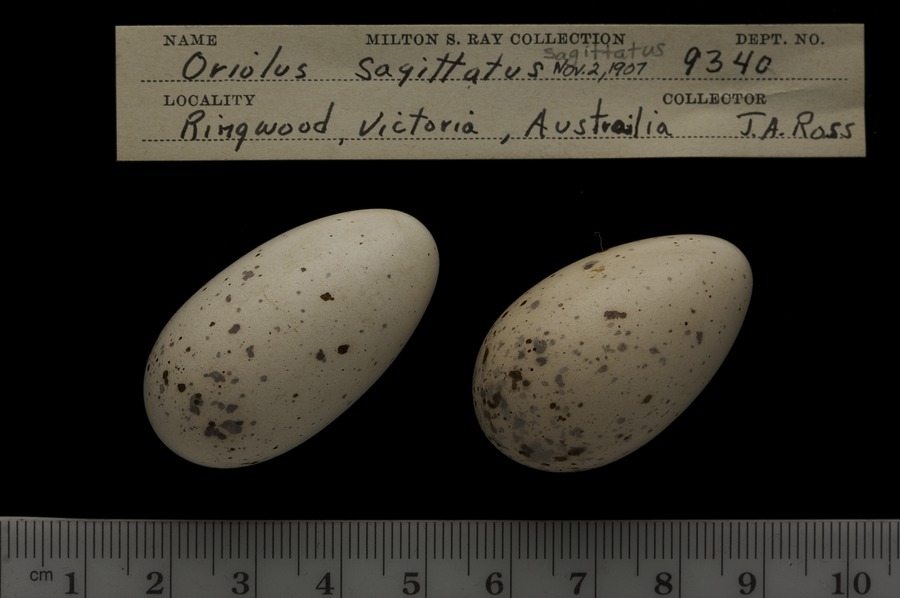 NAME MILTON S. RAY COLLECTION DEPT. NO.
sagittatus
Oriolus Sagittatus Nov. 2, 1907 9340
LOCALITY COLLECTOR
Ringwood, Victoria, Austrailia J.A. Ross
cm 1 2 3 4 5 6 7 8 9 10